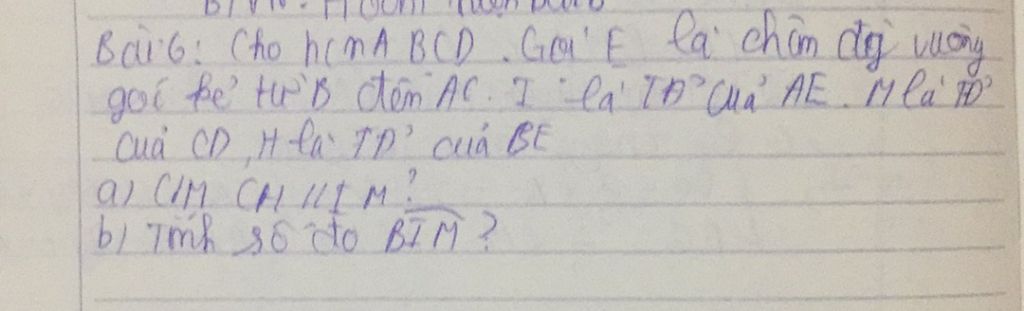 Bài 6: Cho hcn A BCD. Gọi E là chân đg vuông
góc kẻ từ B đến AC. I là TĐ của AE. M là TĐ
của CD, H là TĐ của BE
a) C/M CH // I M?
b) Tính số đo BIM?